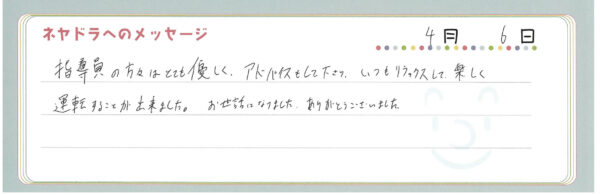 ネヤドラへのメッセージ
4月 6日
指導員の方々はとても優しく、アドバイスもして下さり、いつもリラックスして、楽しく
運転することが出来ました。 お世話になりました。ありがとうございました。